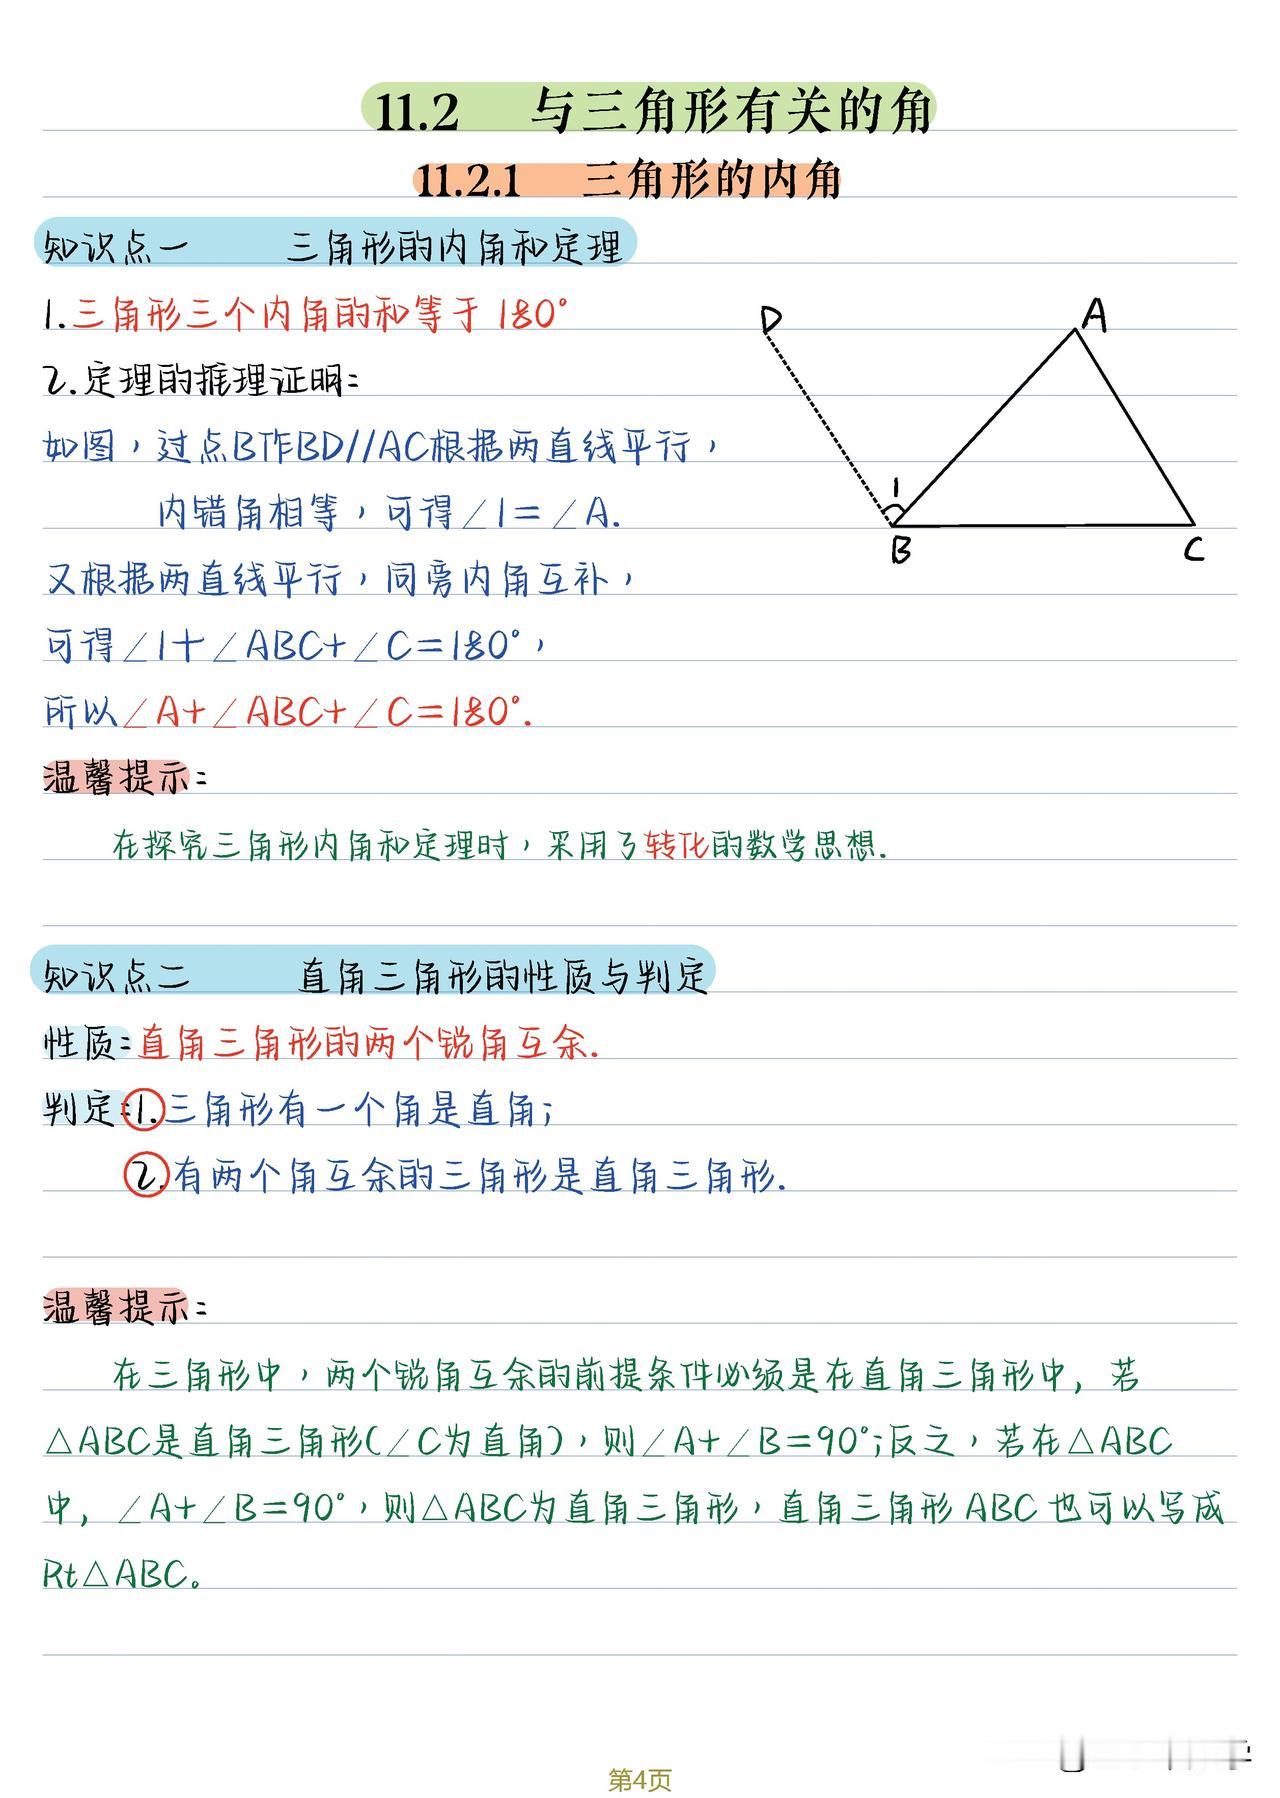 11.2 与三角形有关的角
11.2.1 三角形的内角
知识点一 三角形的内角和定理
1.三角形三个内角的和等于180°
2.定理的推理证明:
如图，过点B作BD//AC根据两直线平行，
内错角相等，可得∠1=∠A.
又根据两直线平行，同旁内角互补，
可得∠1+∠ABC+∠C=180°，
所以∠A+∠ABC+∠C=180°.
D
A
1
B
C
温馨提示:
在探究三角形内角和定理时，采用了转化的数学思想.
知识点二 直角三角形的性质与判定
性质:直角三角形的两个锐角互余.
判定:1.三角形有一个角是直角;
2.有两个角互余的三角形是直角三角形.
温馨提示:
在三角形中，两个锐角互余的前提条件必须是在直角三角形中,若
△ABC是直角三角形(∠C为直角)，则∠A+∠B=90°;反之，若在△ABC
中,∠A+∠B=90°，则△ABC为直角三角形，直角三角形ABC也可以写成
Rt△ABC。
第4页